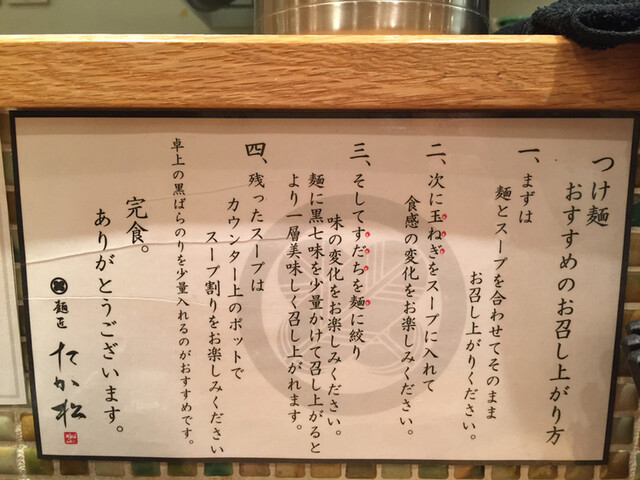 つけ麺
おすすめのお召し上がり方
一、まずは
麺とスープを合わせてそのまま
お召し上がりください。
二、次に玉ねぎをスープに入れて
食感の変化をお楽しみください。
三、そしてすだちを麺に絞り
味の変化をお楽しみください。
麺に黒七味を少量かけて召し上がると
より一層美味しく召し上がれます。
四、残ったスープは
カウンター上のポットで
スープ割りをお楽しみください
卓上の黒ばらのりを少量入れるのがおすすめです。
完食。
ありがとうございます。
麺匠
たか松